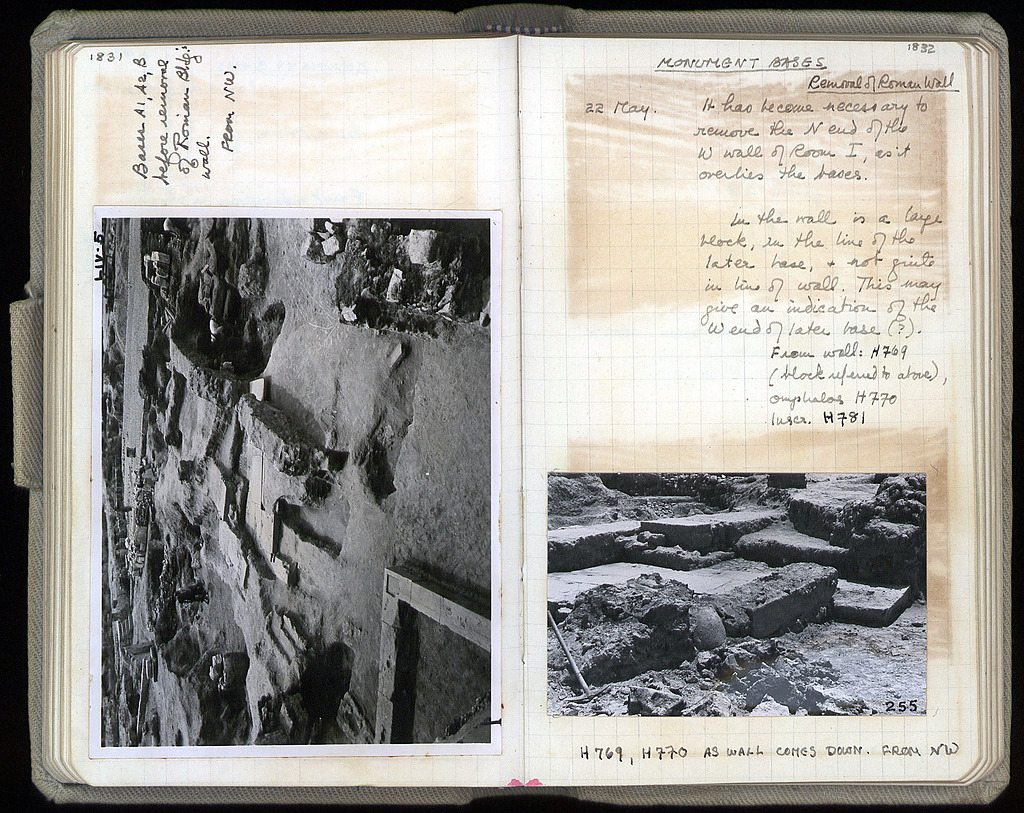 1831
Bases A1, A2, B
before removal
of Roman Bldg:
wall.
From NW.
LIV-5
1832
MONUMENT BASES
Removal of Roman Wall
22 May.
It has become necessary to
remove the N end of the
W wall of Room I, as it
overlies the bases.
In the wall is a large
block, in the line of the
later base, + not quite
in line of wall. This may
give an indication of the
W end of later base (?).
From wall: H769
(block referred to above),
omphalos H770
Inscr. H781
255
H769, H770 AS WALL COMES DOWN. FROM NW